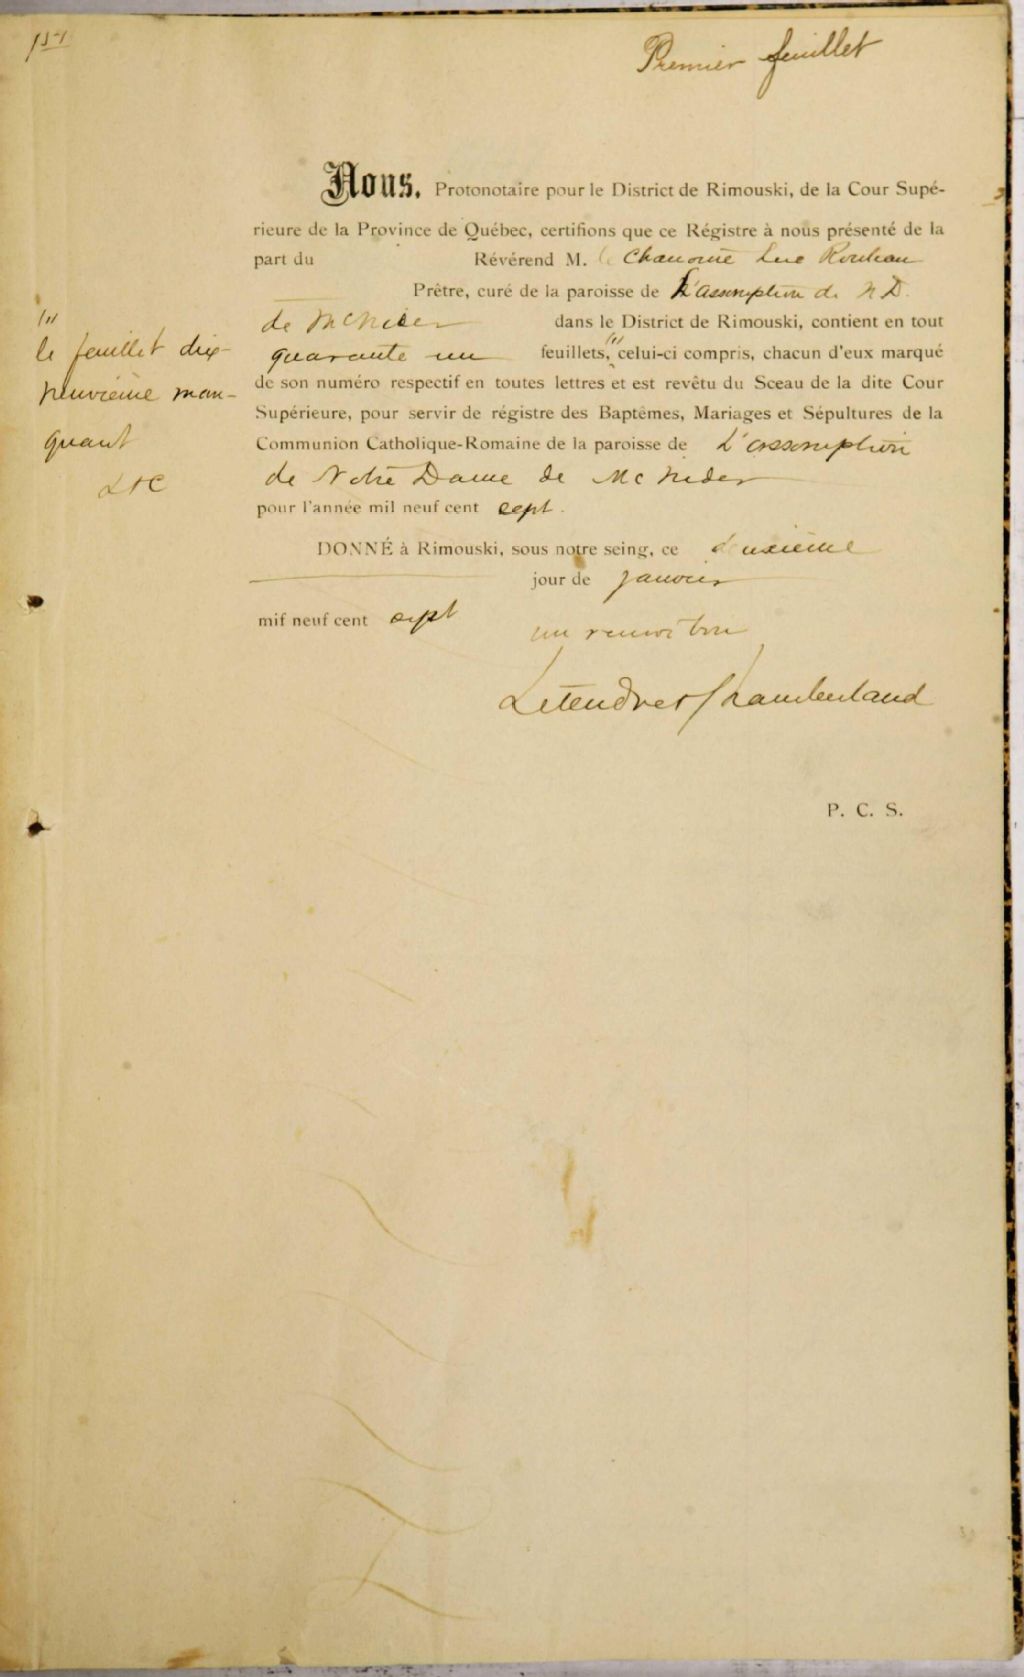 Premier feuillet
Nous, Protonotaire pour le District de Rimouski, de la Cour Supé-
rieure de la Province de Québec, certifions que ce Régistre à nous présenté de la
part du Révérend M. le Chanoine Luc Rouleau
Prêtre, curé de la paroisse de L'assomption de N D.
de McNider dans le District de Rimouski, contient en tout
quarante un feuillets, celui-ci compris, chacun d'eux marqué
de son numéro respectif en toutes lettres et est revêtu du Sceau de la dite Cour
Supérieure, pour servir de régistre des Baptêmes, Mariages et Sépultures de la
Communion Catholique-Romaine de la paroisse de L'assomption
de Notre Dame de McNider
pour l'année mil neuf cent sept.
DONNÉ à Rimouski, sous notre seing, ce deuxième
jour de janvier
mil neuf cent sept
un renvoi bon
Letendre & Chamberland
P. C. S.
le feuillet dix-
neuvième man-
quant
L & C